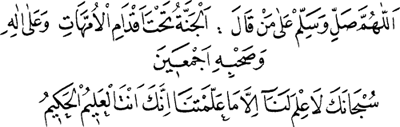 اَللّٰهُمَّ صَلِّ وَسَلِّمْ عَلٰى مَنْ قَالَ : اَلْجَنَّةُ تَحْتَ اَقْدَامِ الْاُمَّهَاتِ وَعَلٰى اٰلِهِ
وَصَحْبِهِ اَجْمَعِينَ
سُبْحَانَكَ لَا عِلْمَ لَنَا اِلَّا مَا عَلَّمْتَنَا اِنَّكَ اَنْتَ الْعَلِيمُ الْحَكِيمُ